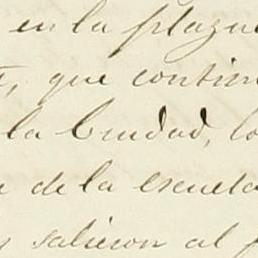 en la plazue
, que contin
la Ciudad, lo
de la escuela
salieron al